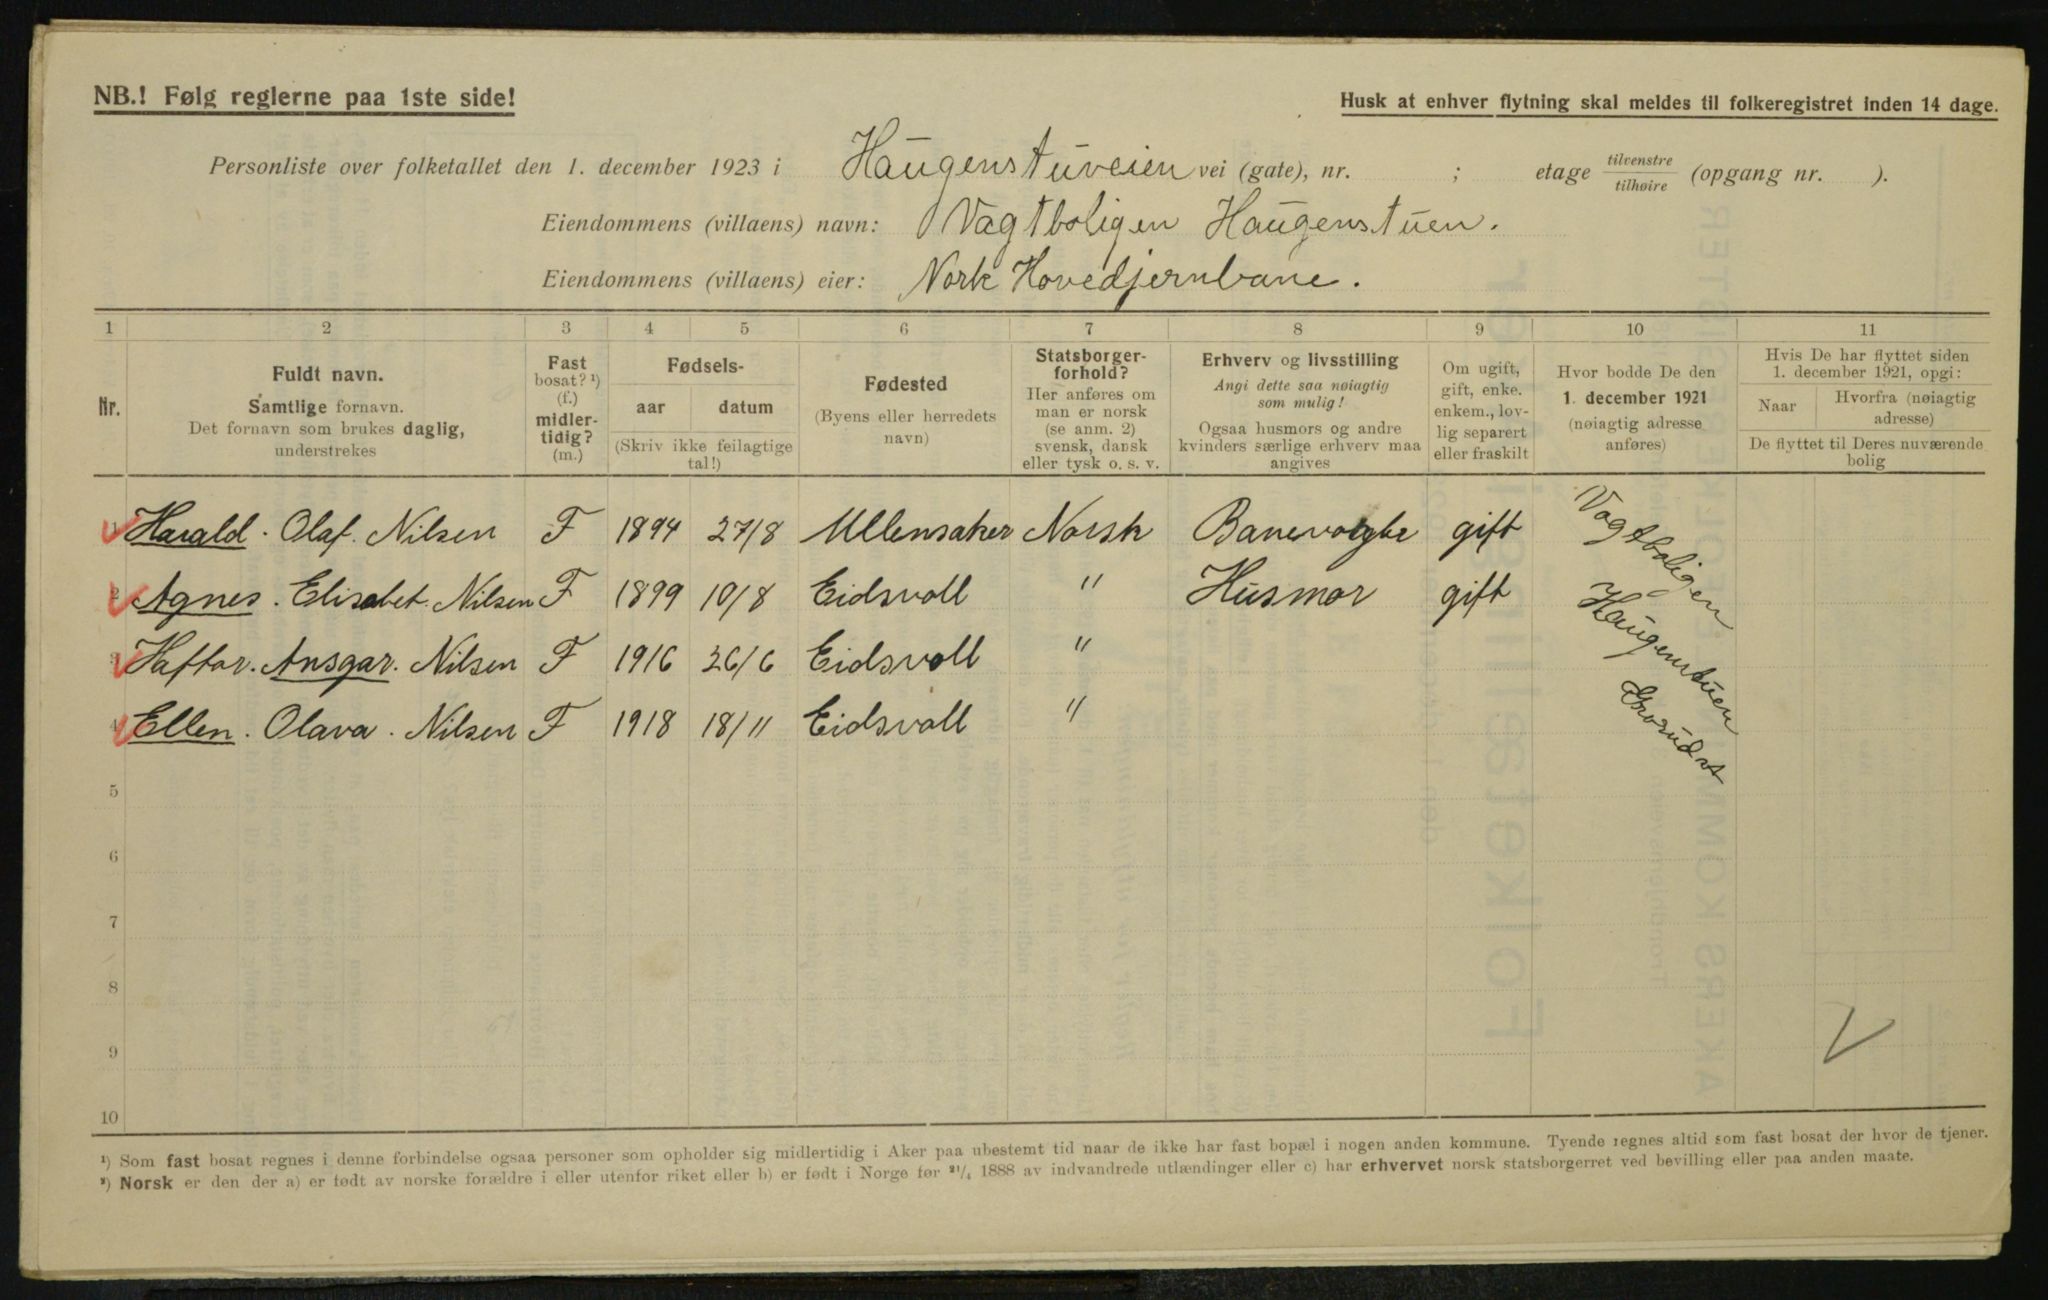 NB.! Følg reglerne paa 1ste side!
Husk at enhver flytning skal meldes til folkeregistret inden 14 dage.
Personliste over folketallet den 1. december 1923 i Haugenstuveien vei (gate), nr. ; etage tilvenstre/tilhøire (opgang nr. ).
Eiendommens (villaens) navn: Vagtboligen Haugenstuen.
Eiendommens (villaens) eier: Nork Hovedjernbane.
1 2 3 4 5 6 7 8 9 10 11
Nr.
Fuldt navn.
Samtlige fornavn.
Det fornavn som brukes daglig,
understrekes
Fast
bosat? ¹)
(f.)
midler-
tidig?
(m.)
Fødsels-
aar datum
(Skriv ikke feilagtige
tal!)
Fødested
(Byens eller herredets
navn)
Statsborger-
forhold?
Her anføres om
man er norsk
(se anm. 2)
svensk, dansk
eller tysk o. s. v.
Erhverv og livsstilling
Angi dette saa nøiagtig
som mulig!
Ogsaa husmors og andre
kvinders særlige erhverv maa
angives
Om ugift,
gift, enke.
enkem., lov-
lig separert
eller fraskilt
Hvor bodde De den
1. december 1921
(nøiagtig adresse
anføres)
Hvis De har flyttet siden
1. december 1921, opgi:
Naar
Hvorfra (nøiagtig
adresse)
De flyttet til Deres nuværende
bolig
1 Harald. Olaf. Nilsen F 1894 27/8 Ullensaker Norsk Banevogte gift
2 Agnes. Elisabet. Nilsen F 1899 10/8 Eidsvoll " Husmor gift
3 Haftor. Ansgar. Nilsen F 1916 26/6 Eidsvoll "
4 Ellen. Olava. Nilsen F 1918 18/11 Eidsvoll "
Vogtboligen
Haugenstuen
Grorud st
5
6
7
8
9
10
¹) Som fast bosat regnes i denne forbindelse ogsaa personer som opholder sig midlertidig i Aker paa ubestemt tid naar de ikke har fast bopæl i nogen anden kommune. Tyende regnes altid som fast bosat der hvor de tjener.
²) Norsk er den der a) er født av norske forældre i eller utenfor riket eller b) er født i Norge før ²¹/₄ 1888 av indvandrede utlændinger eller c) har erhvervet norsk statsborgerret ved bevilling eller paa anden maate.